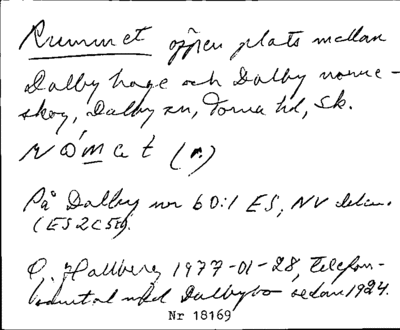 Rummet öppen plats mellan
Dalby hage och Dalby norre-
skog, Dalby sn, Torna hd, Sk.
(n.)
På Dalby nr 60:1 ES, NV delen.
(ES2C5d).
Hallberg 1977-01-28, telefon-
samtal med Dalbybo sedan 1924.
Nr 18169